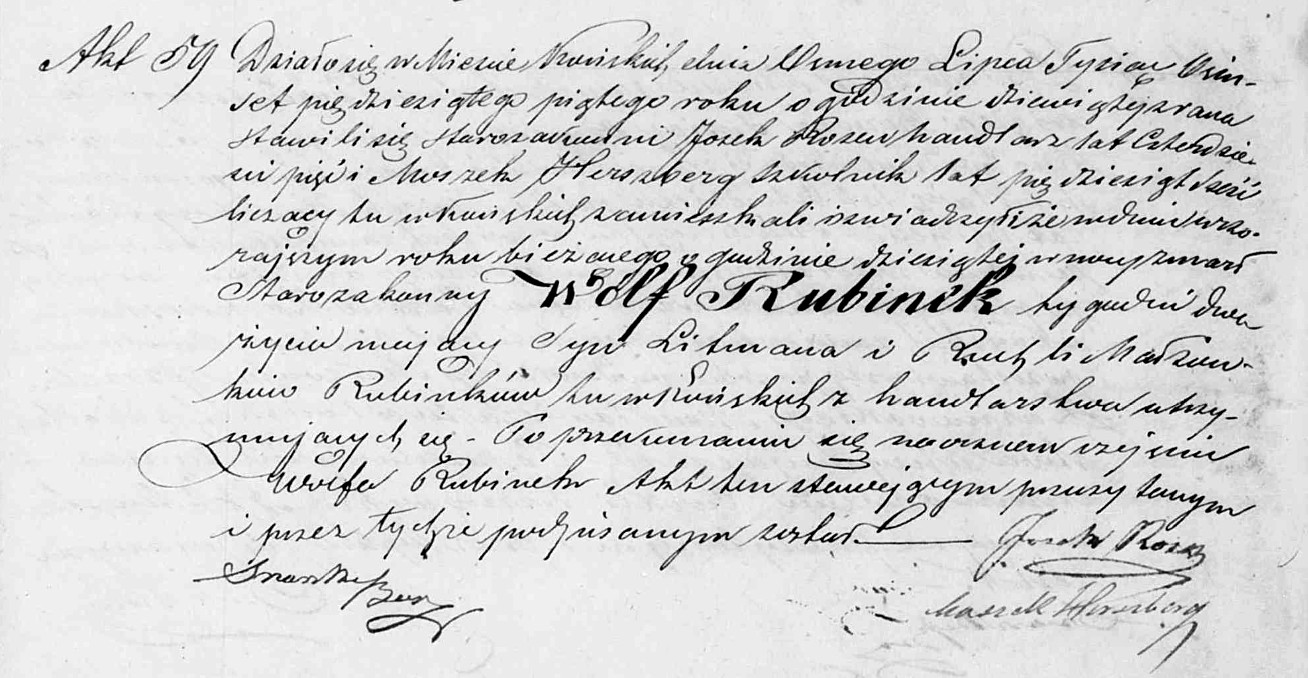 Akt 59 Działo się w Mieście Końskich dnia Osmego Lipca Tysiąc Ośm-
set piędziesiątego piątego roku o godzinie dziewiątej zrana
stawili się starozakonni Josek Rozen handlarz lat czterdzie-
ści pięć i Moszek Herszberg szkolnik lat piędziesiąt sześć
liczący tu w Końskich zamieszkali i oświadczyli że w dniu wczo-
rajszym roku bieżącego o godzinie dziesiątej w nocy zmarł
Starozakonny Wolf Rubinek tygodni dwa
życia mający Syn Litmana i Ruchli Małżon-
ków Rubinków tu w Końskich z handlarstwa utrzy-
mujących się - Po przekonaniu się naocznem o zejściu
Wolfa Rubinek Akt ten stawającym przeczytanym
i przez tychże podpisanym został Josek Rozen
Moszek Herszberg